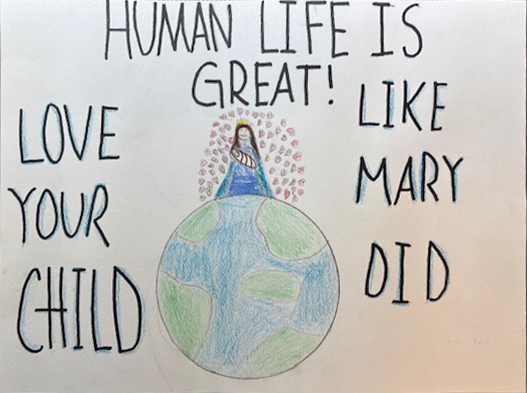 HUMAN LIFE IS
GREAT!
LOVE
YOUR
CHILD
LIKE
MARY
DID